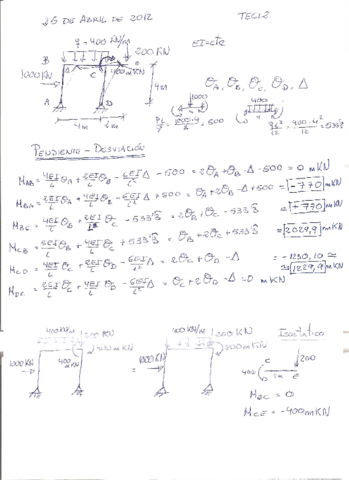 25 DE ABRIL DE 2012 TEC12
q = 400 KN/m
200 KN
EI = cte
B
1000 KN
C
400 mKN
4m
A
D
4m
2m
θA, θB, θC, θD, Δ
1000
400
PL/8 = 1000·4/8 = 500
qL²/12 = 400·4²/12 = 533'3̂
PENDIENTE - DESVIACIÓN
MAB = 4EI/L θA + 2EI/L θB - 6EI/L² Δ - 500 = 2θA + θB - Δ - 500 = 0 mKN
MBA = 2EI/L θA + 4EI/L θB - 6EI/L² Δ + 500 = θA + 2θB - Δ + 500 = -770 mKN
MBC = 4EI/L θB + 2EI/L θC - 533'3̂ = 2θB + θC - 533'3̂ = +770 mKN
MCB = 2EI/L θB + 4EI/L θC + 533'3̂ = θB + 2θC + 533'3̂ = 2029,9 mKN
MCD = 4EI/L θC + 2EI/L θD - 6EI/L² Δ = 2θC + θD - Δ = -1230,10 ≈ 1229,9 mKN
MDC = 2EI/L θC + 4EI/L θD - 6EI/L² Δ = θC + 2θD - Δ = 0 mKN
400 KN/m 200 KN
1000 KN
400 mKN
=
400 KN/m 200 KN
1000 KN
Isostático
C
200
400
2m
E
MEC = 0
MCE = -400 mKN